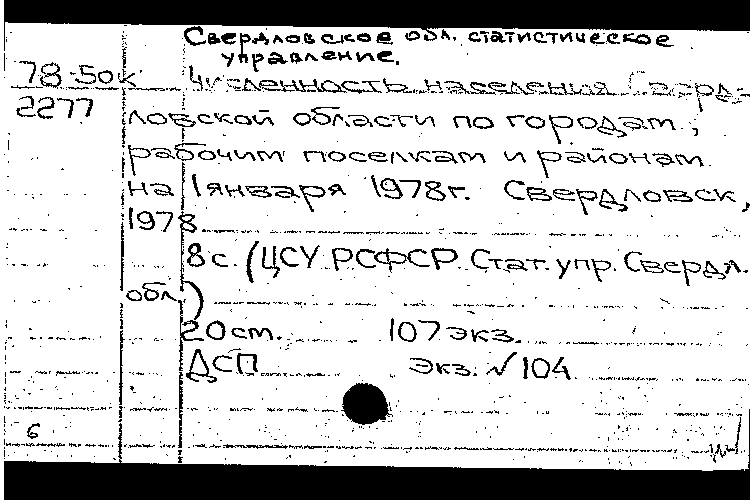 Свердловское обл. статистическое
управление.
78-50к Численность населения Сверд-
2277 ловской области по городам,
рабочим поселкам и районам
на 1 января 1978г. Свердловск,
1978
8 с. (ЦСУ РСФСР. Стат. упр. Свердл.
обл.)
20 ст. 107 экз.
ДСП экз. √ 104
6